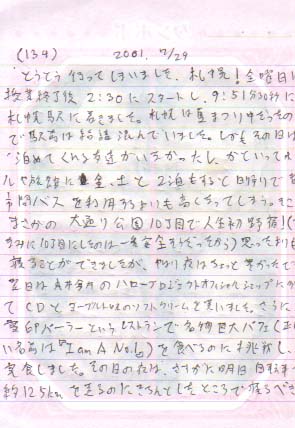 (134) 2001. 7/29
とうとう行ってしまいました、札幌！金曜日に
授業終了後 2:30にスタートし、9:51分30秒に
札幌駅に着きました。札幌は夏まつり中だそうの
で駅前は結構混んでいました。しかもその日は
泊めてくれる友達がいなかったし、かといってホ
ルや旅館に金、土と2泊もすると日帰りで
バスを利用するよりも高くなってしまう。
まさかの大通り公園10丁目で人生初野宿!
みに10丁目にしたのは一番安全そうだったから)思ったよりも
寝ることができましたが、やはり夜はちょっと寒かったで
翌日は ハロープロジェクトオフィシャルショップに
てCDと ヨーグルト味のソフトクリームを買いました。さらに
雪印パーラーというレストランで名物巨大パフェ(正
い名前は『I am A No.1』)を食べるのに挑戦し、
完食しました。その日の夜は、さすがに明日自転車
約125kmを走るのにきちんとしたところで寝るべき